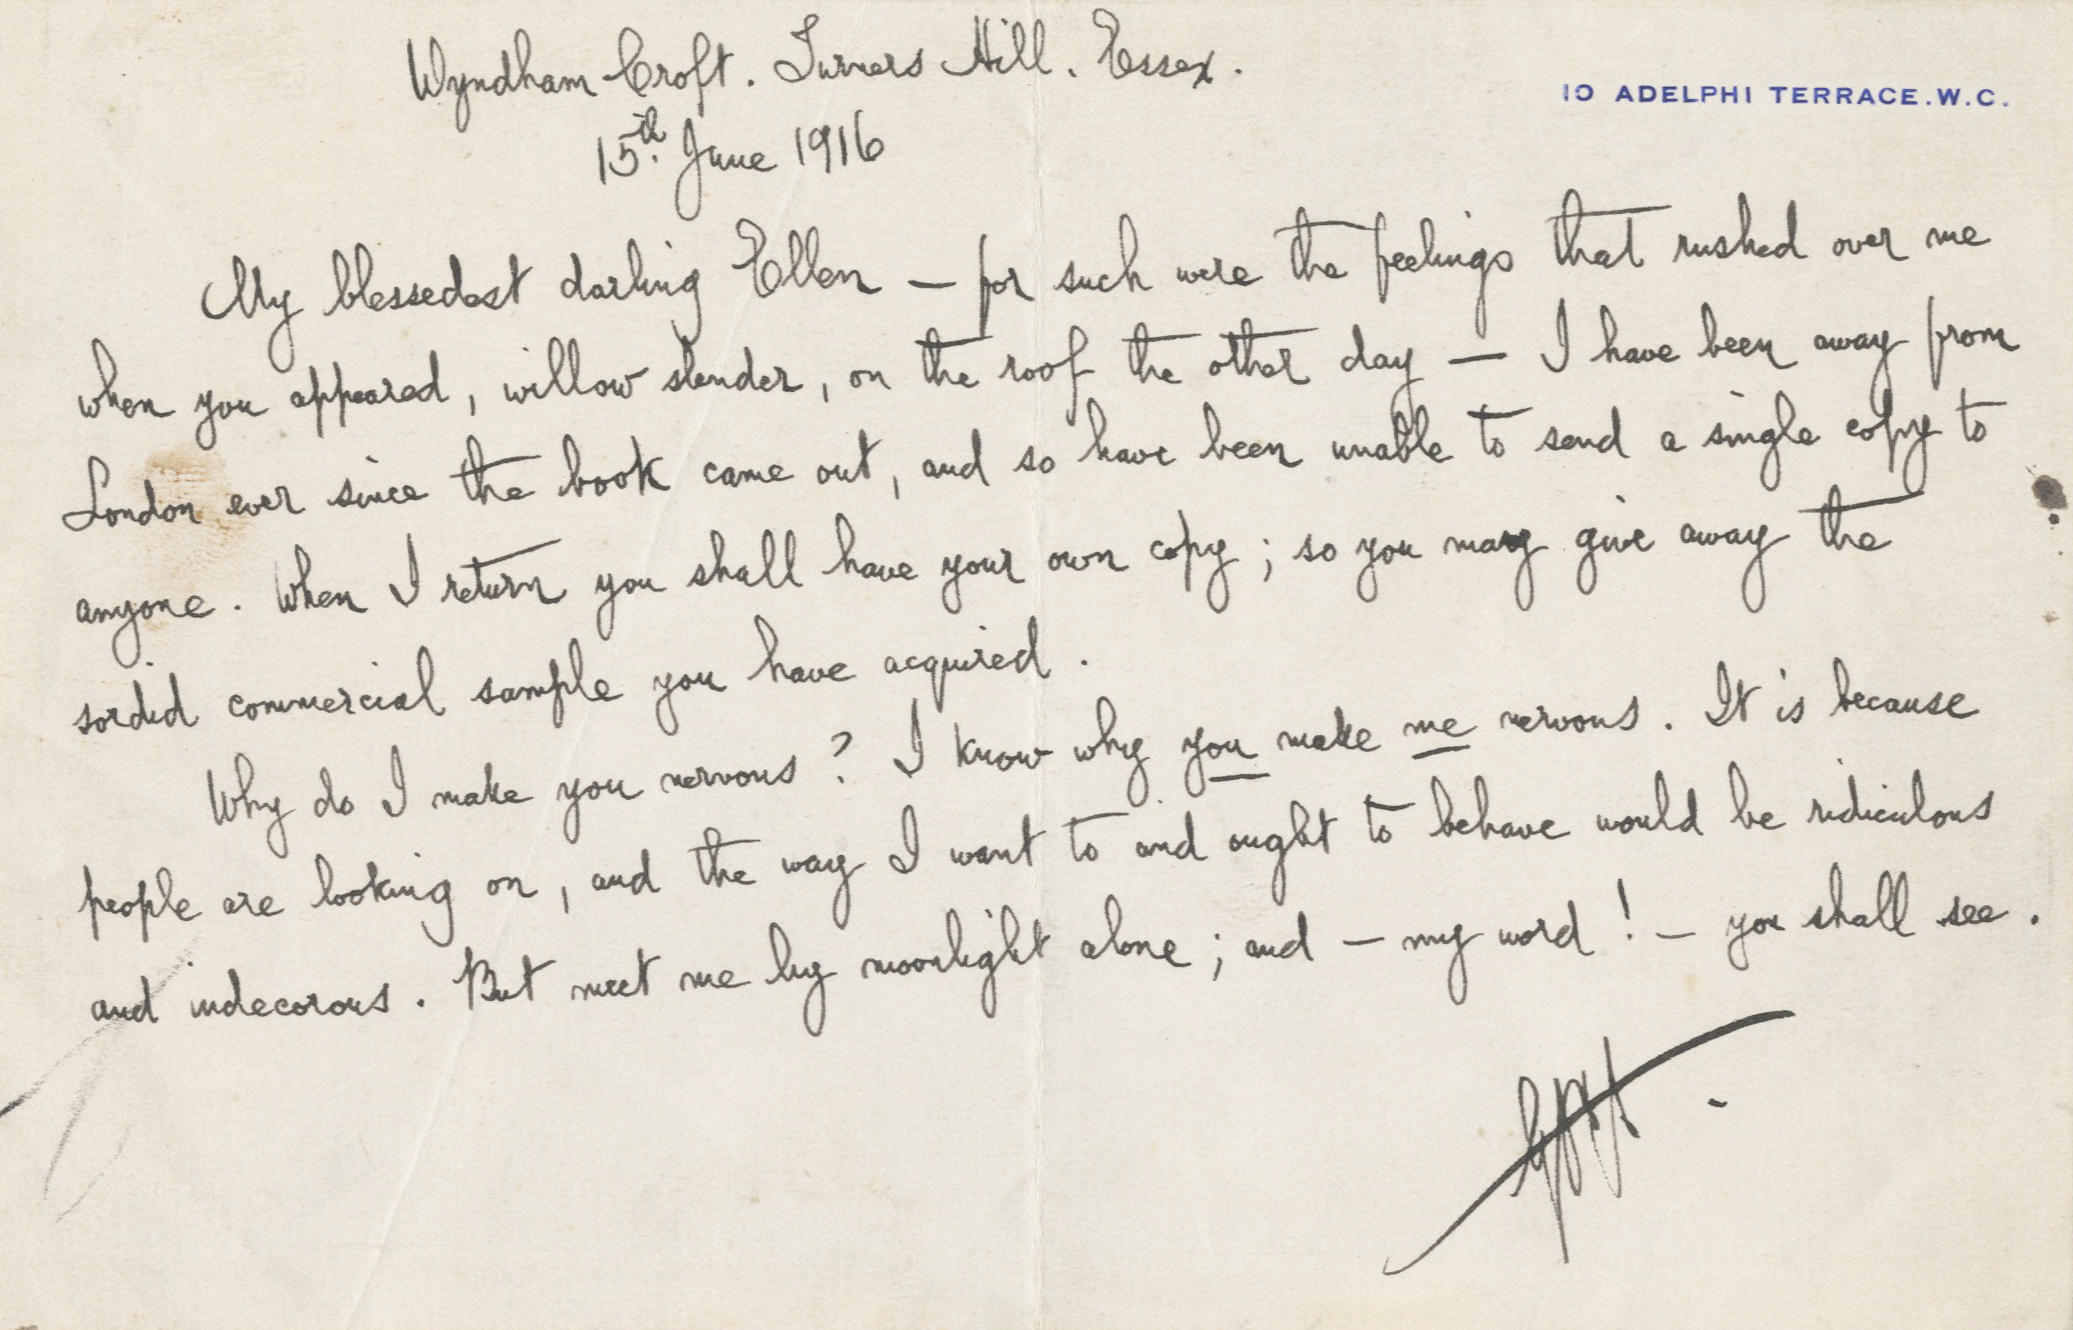 Wyndham Croft. Turners Hill. Essex.
10 ADELPHI TERRACE. W.C.
15th. June 1916
My blessedest darling Ellen — for such were the feelings that rushed over me
when you appeared, willow slender, on the roof the other day — I have been away from
London ever since the book came out, and so have been unable to send a single copy to
anyone. When I return you shall have your own copy; so you may give away the
sordid commercial sample you have acquired.
Why do I make you nervous? I know why you make me nervous. It is because
people are looking on, and the way I want to and ought to behave would be ridiculous
and indecorous. But meet me by moonlight alone; and — my word! — you shall see.